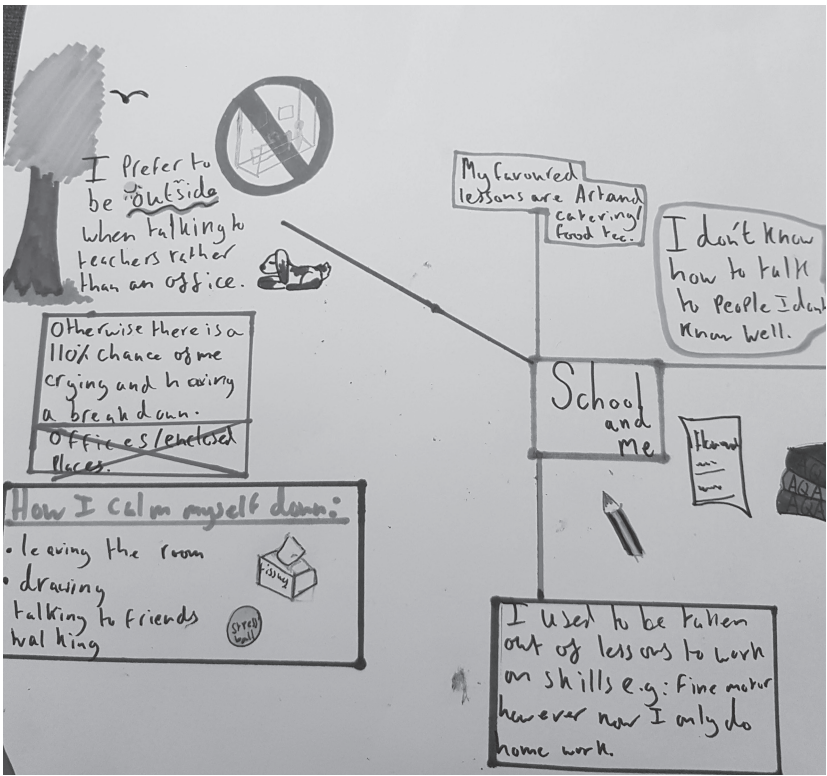 I Prefer to
be outside
when talking to
teachers rather
than an office.
Otherwise there is a
110% chance of me
crying and having
a breakdown.
Offices/enclosed
Places.
How I calm myself down:
• leaving the room
• drawing
talking to friends
walking
tissues
stress
ball
My favoured
lessons are Art and
catering/
food tec.
I don't know
how to talk
to People I don't
Know well.
School
and
me
AQA
AQA
I used to be taken
out of lessons to work
on skills e.g: Fine motor
however now I only do
home work.